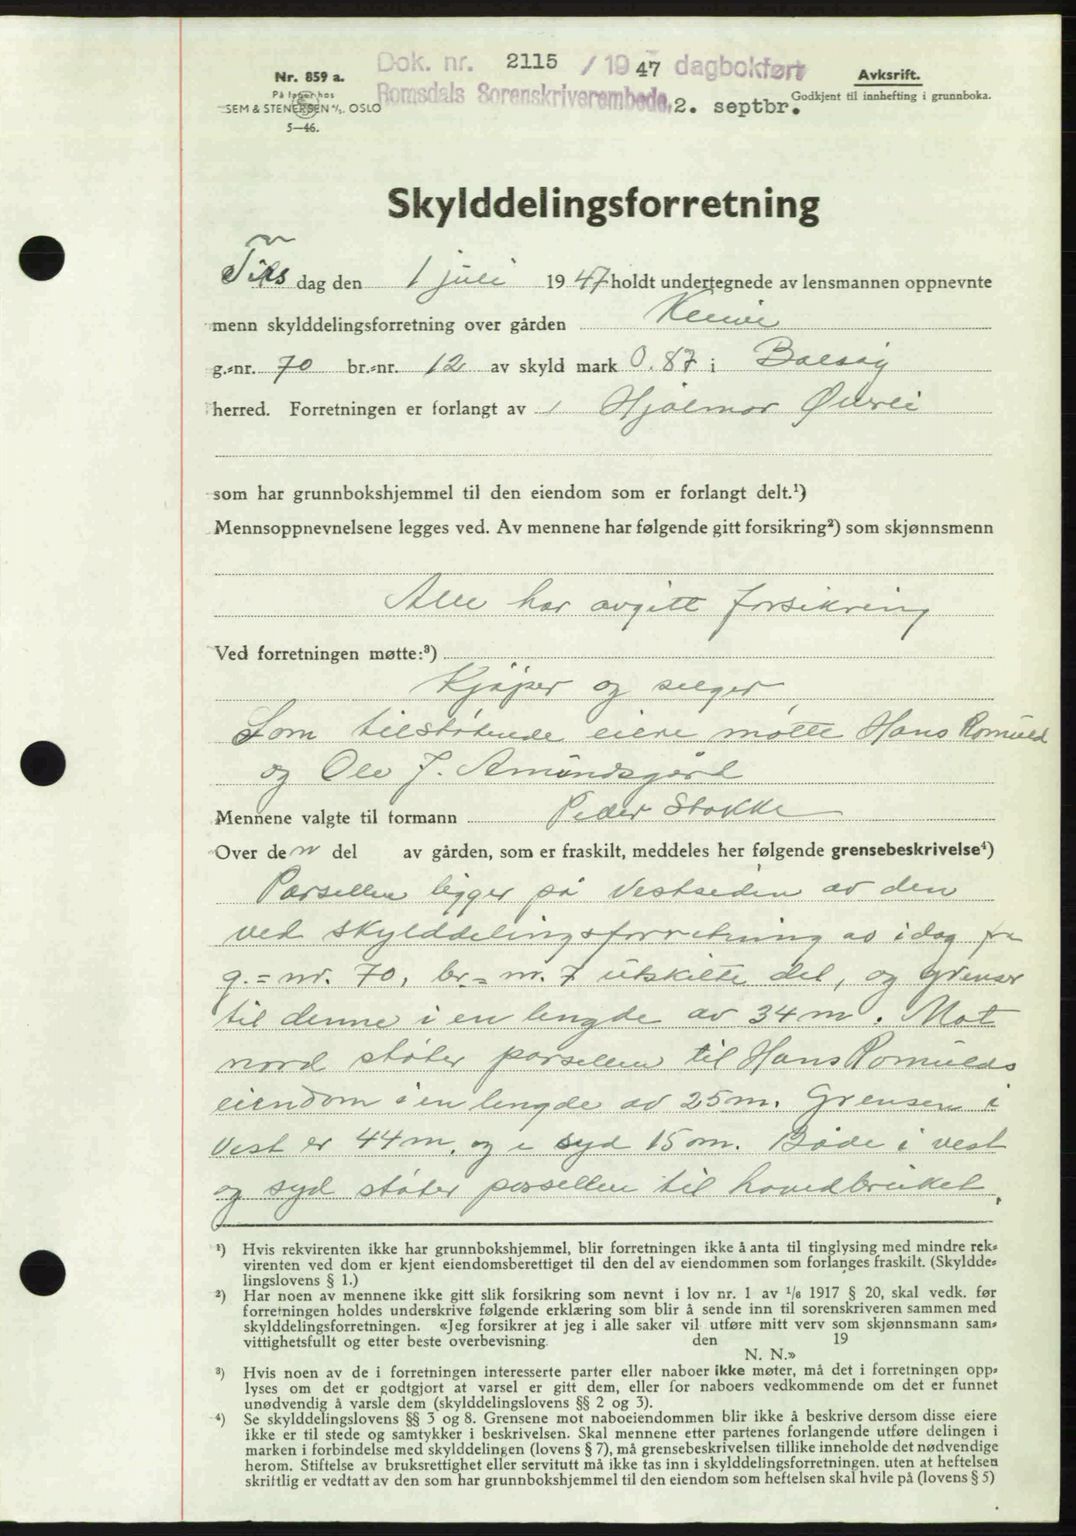 Nr. 859 a.
På lager hos
SEM & STENERSEN A/S. OSLO
5—46.
Dok. nr. 2115 / 1947 dagbokført
Romsdals Sorenskriverembede, 2. septbr.
Avkskrift.
Godkjent til innhefting i grunnboka.
Skylddelingsforretning
Tirsdag den 1 juli 1947 holdt undertegnede av lensmannen oppnevnte
menn skylddelingsforretning over gården
g.-nr. 70 br.-nr. 12 av skyld mark 0.87 i Bolsøy
herred. Forretningen er forlangt av Hjalmar
som har grunnbokshjemmel til den eiendom som er forlangt delt.¹)
Mennsoppnevnelsene legges ved. Av mennene har følgende gitt forsikring²) som skjønnsmenn
Alle har avgitt forsikring
Ved forretningen møtte:³)
Kjøper og selger
Som tilstøtende eiere møtte Hans Romuld
og Ole J. Amundsgård
Mennene valgte til formann Peder Stokke
Over den del av gården, som er fraskilt, meddeles her følgende grensebeskrivelse⁴)
Parsellen ligger på vestsiden av den
ved skylddelingsforretning av idag fra
g.=nr. 70, br.=nr. 7 utskilte del, og grenser
til denne i en lengde av 34 m. Mot
nord støter parsellen til Hans Romulds
eiendom i en lengde av 25 m. Grensen i
vest er 44 m, og i syd 15 m. Både i vest
og syd støter parsellen til hovedbruket.
¹) Hvis rekvirenten ikke har grunnbokshjemmel, blir forretningen ikke å anta til tinglysing med mindre rek-
virenten ved dom er kjent eiendomsberettiget til den del av eiendommen som forlanges fraskilt. (Skyldde-
lingslovens § 1.)
²) Har noen av mennene ikke gitt slik forsikring som nevnt i lov nr. 1 av 1/6 1917 § 20, skal vedk. før
forretningen holdes underskrive følgende erklæring som blir å sende inn til sorenskriveren sammen med
skylddelingsforretningen. «Jeg forsikrer at jeg i alle saker vil utføre mitt verv som skjønnsmann sam-
vittighetsfullt og etter beste overbevisning. den 19
N. N.»
³) Hvis noen av de i forretningen interesserte parter eller naboer ikke møter, må det i forretningen opp-
lyses om det er godtgjort at varsel er gitt dem, eller for naboers vedkommende om det er funnet
unødvendig å varsle dem (skylddelingslovens §§ 2 og 3).
⁴) Se skylddelingslovens §§ 3 og 8. Grensene mot naboeiendommen blir ikke å beskrive dersom disse eiere
ikke er til stede og samtykker i beskrivelsen. Skal mennene etter partenes forlangende utføre delingen i
marken i forbindelse med skylddelingen (lovens § 7), må grensebeskrivelsen tillike inneholde det nødvendige
herom. Stiftelse av bruksrettighet eller servitutt må ikke tas inn i skylddelingsforretningen. uten at heftelsen
skriftlig er vedtatt av den som har grunnbokshjemmel til den eiendom som heftelsen skal hvile på (lovens § 5)